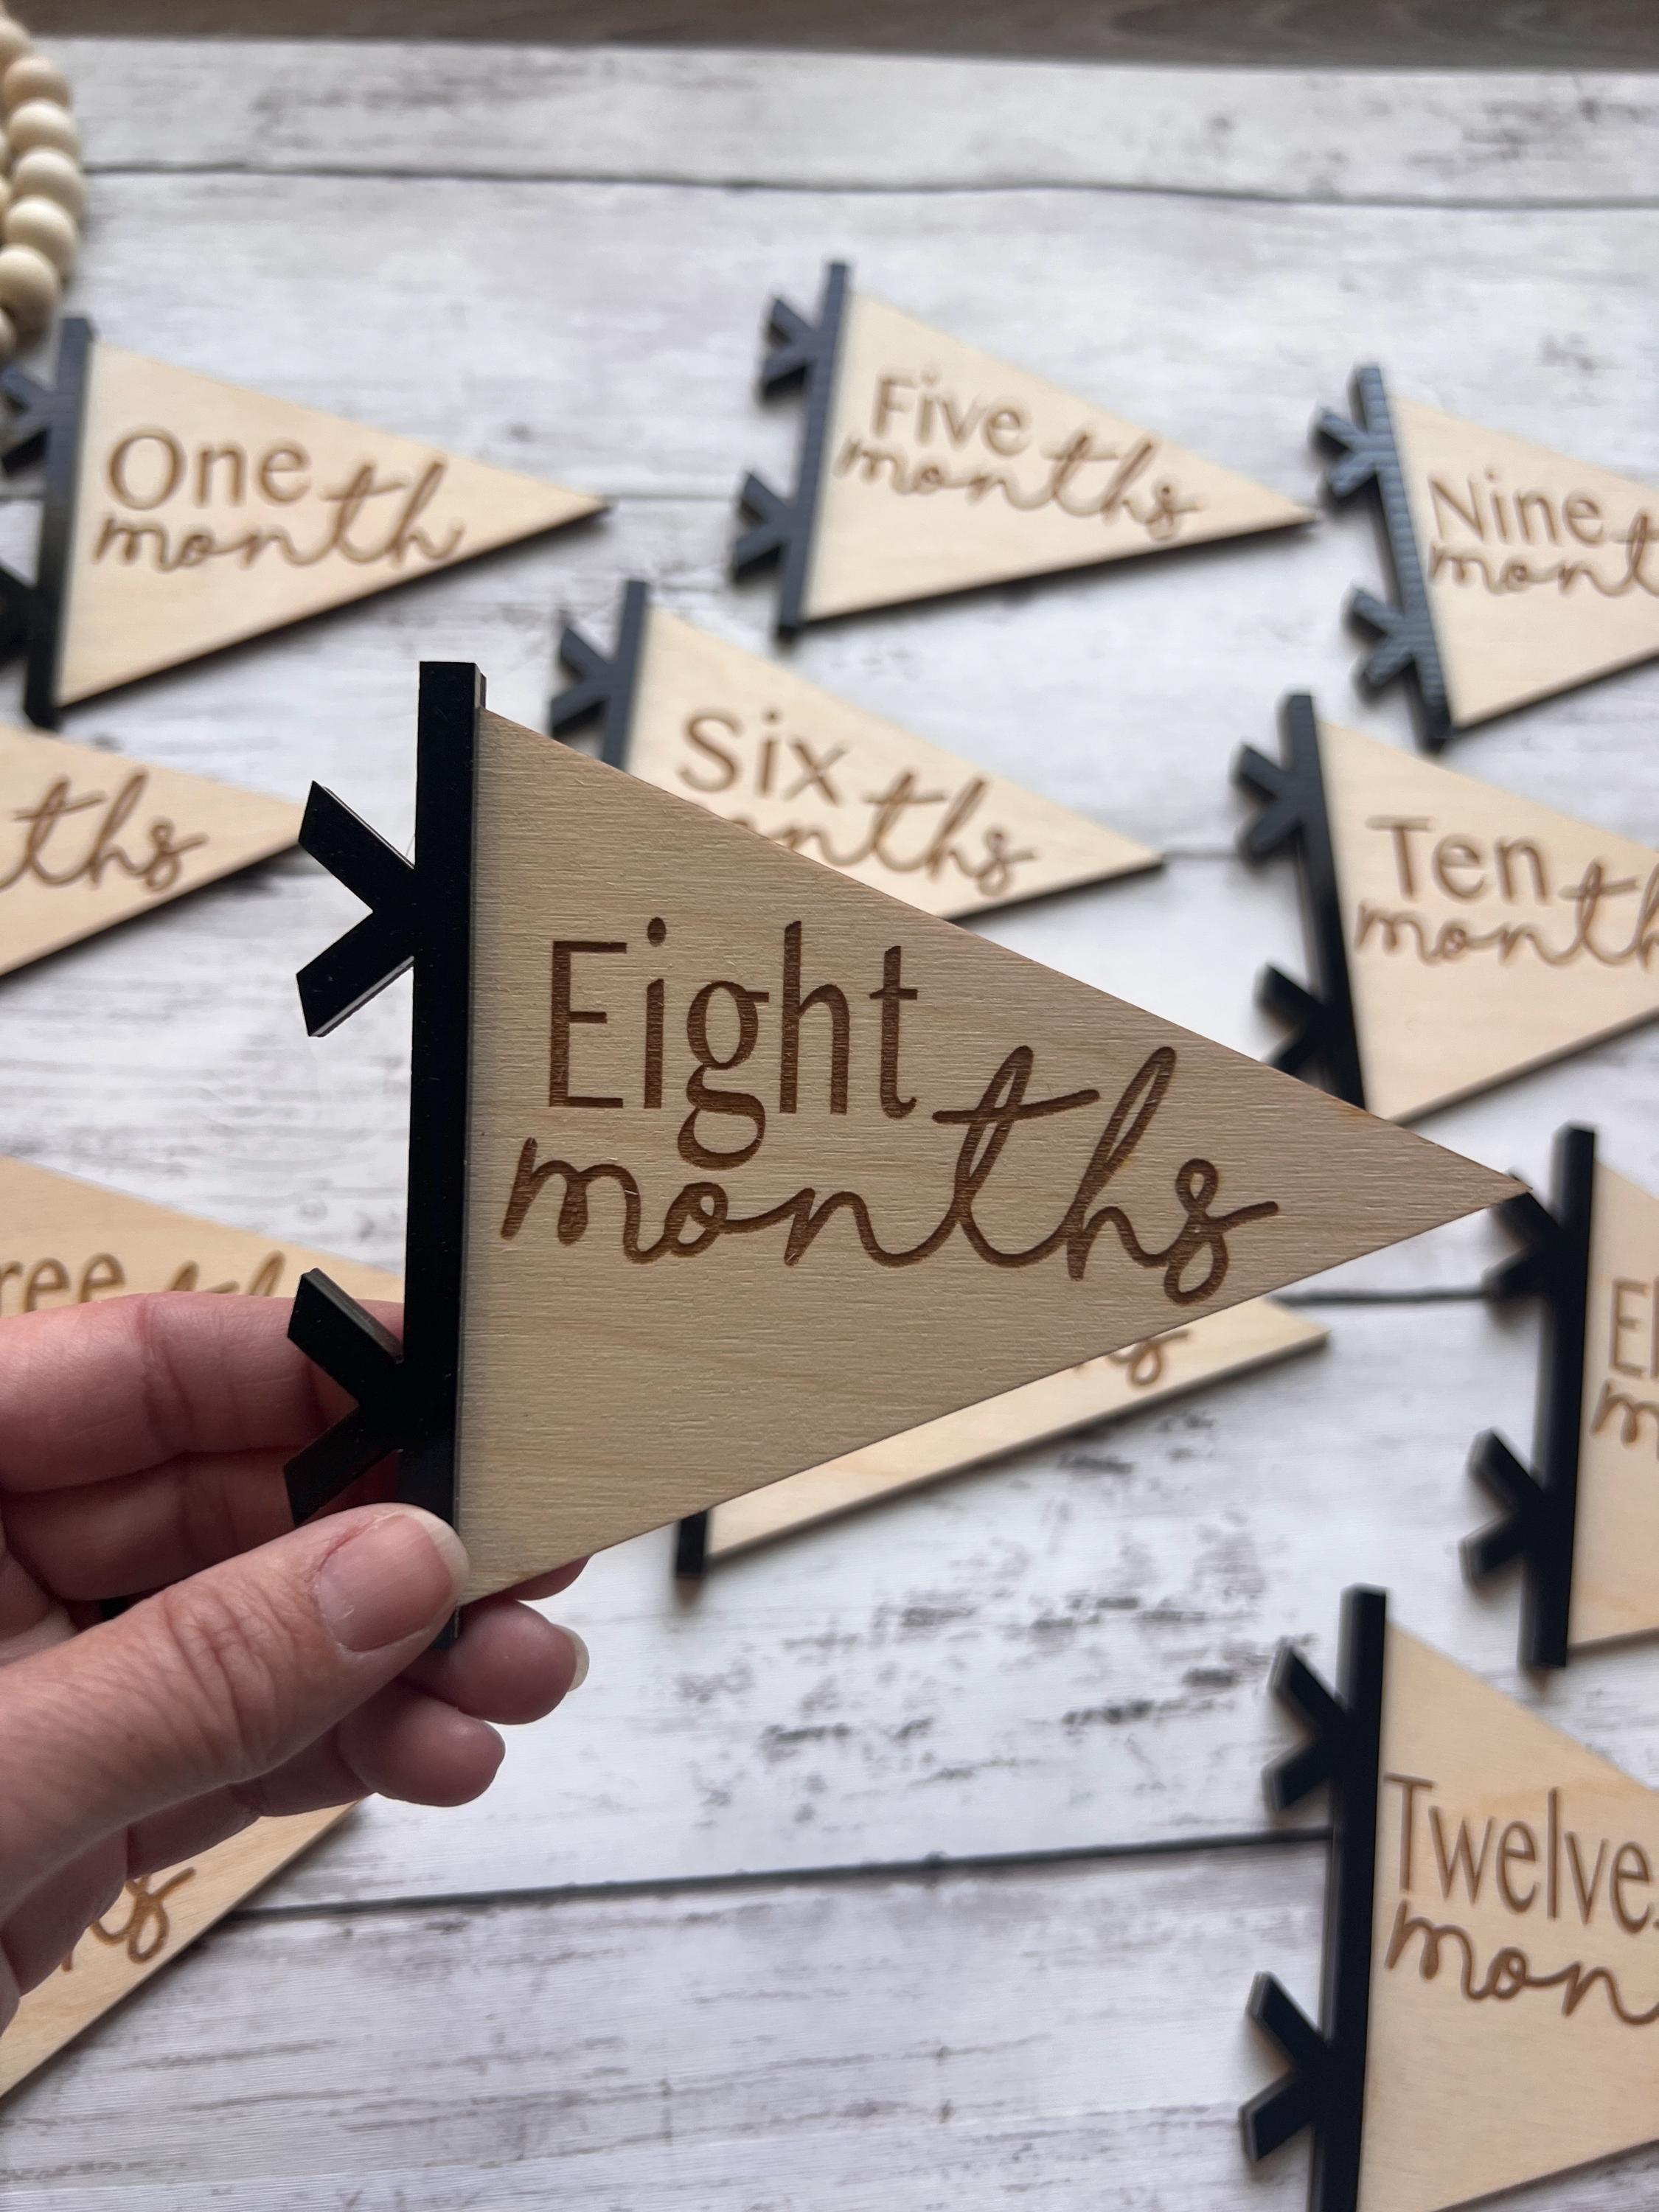 One
month
Five
months
Nine
mont
Six
onths
Ten
month
ths
Eight
months
ree
El
m
s
Twelve
mon
s